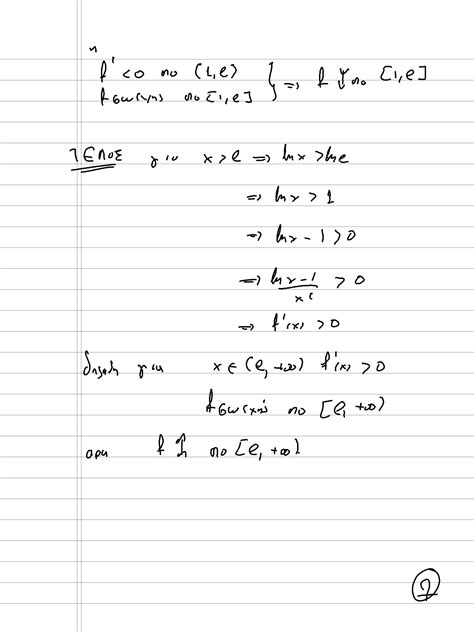 f' < 0 στο (1, e) } ⇒ f ↓ στο [1, e]
f συνεχής στο [1, e]
ΤΕΛΟΣ για x > e ⇒ ln x > ln e
⇒ ln x > 1
⇒ ln x - 1 > 0
⇒ (ln x - 1)/x² > 0
⇒ f'(x) > 0
δηλαδή για x ∈ (e, +∞) f'(x) > 0
f συνεχής στο [e, +∞)
αρα f ↑ στο [e, +∞)
2